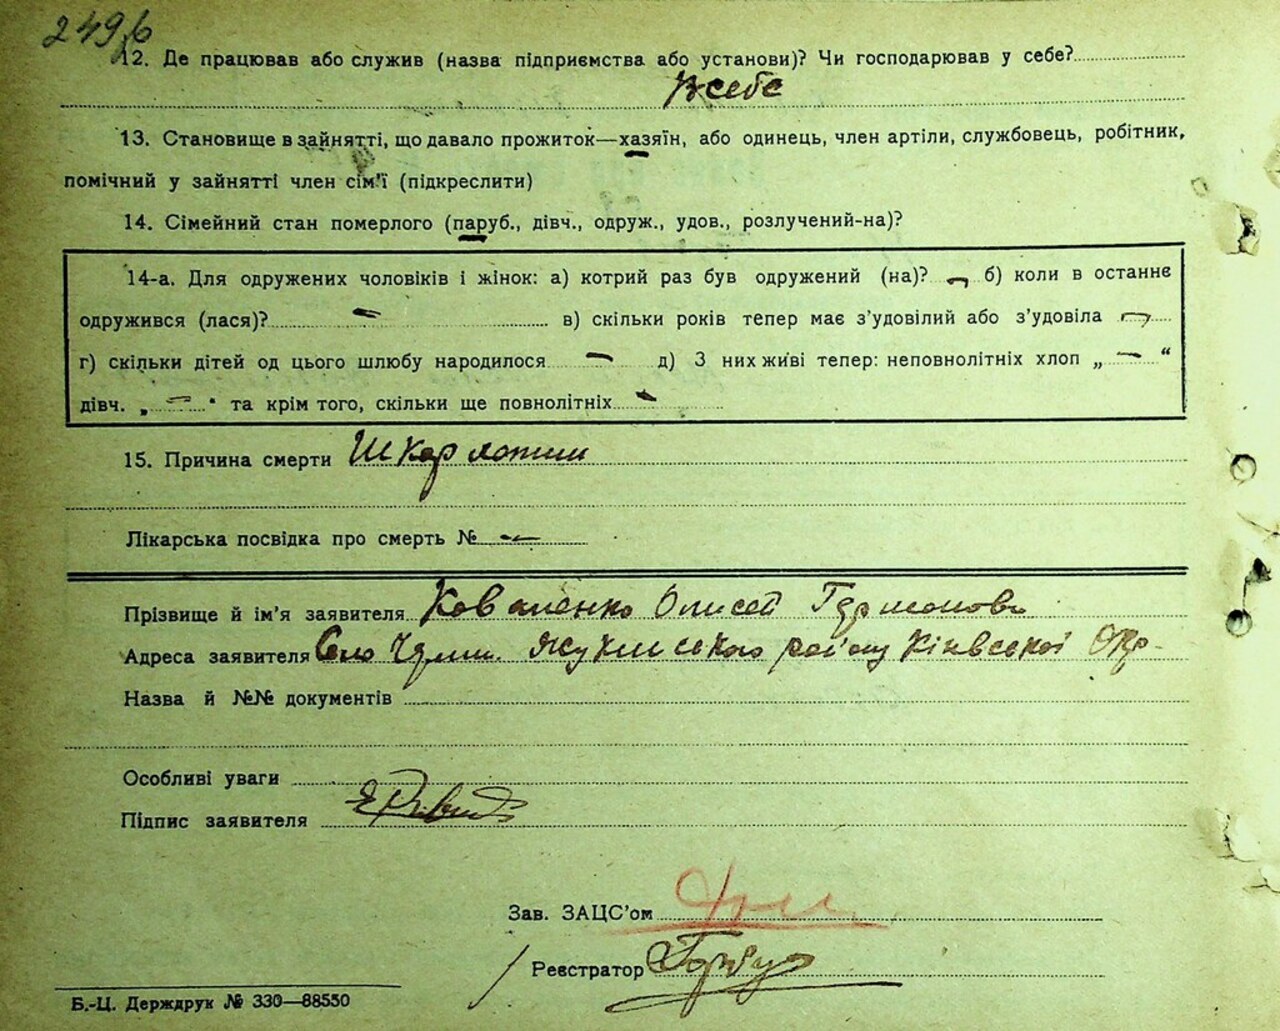 2496
12. Де працював або служив (назва підприємства або установи)? Чи господарював у себе?
В себе
13. Становище в зайнятті, що давало прожиток—хазяїн, або одинець, член артіли, службовець, робітник,
помічний у зайнятті член сім'ї (підкреслити)
14. Сімейний стан померлого (паруб., дівч., одруж., удов., розлучений-на)?
14-а. Для одружених чоловіків і жінок: а) котрий раз був одружений (на)? — б) коли в останнє
одружився (лася)? — в) скільки років тепер має з'удовілий або з'удовіла —
г) скільки дітей од цього шлюбу народилося — д) З них живі тепер: неповнолітніх хлоп „ — “
дівч. „ — " та крім того, скільки ще повнолітніх —
15. Причина смерти Шкарлатина
Лікарська посвідка про смерть № —
Прізвище й ім'я заявителя Коваленко Олисей
Адреса заявителя Село району Київської Окр
Назва й №№ документів
Особливі уваги
Підпис заявителя
Зав. ЗАЦС'ом
Реєстратор
Б.-Ц. Держдрук № 330—88550